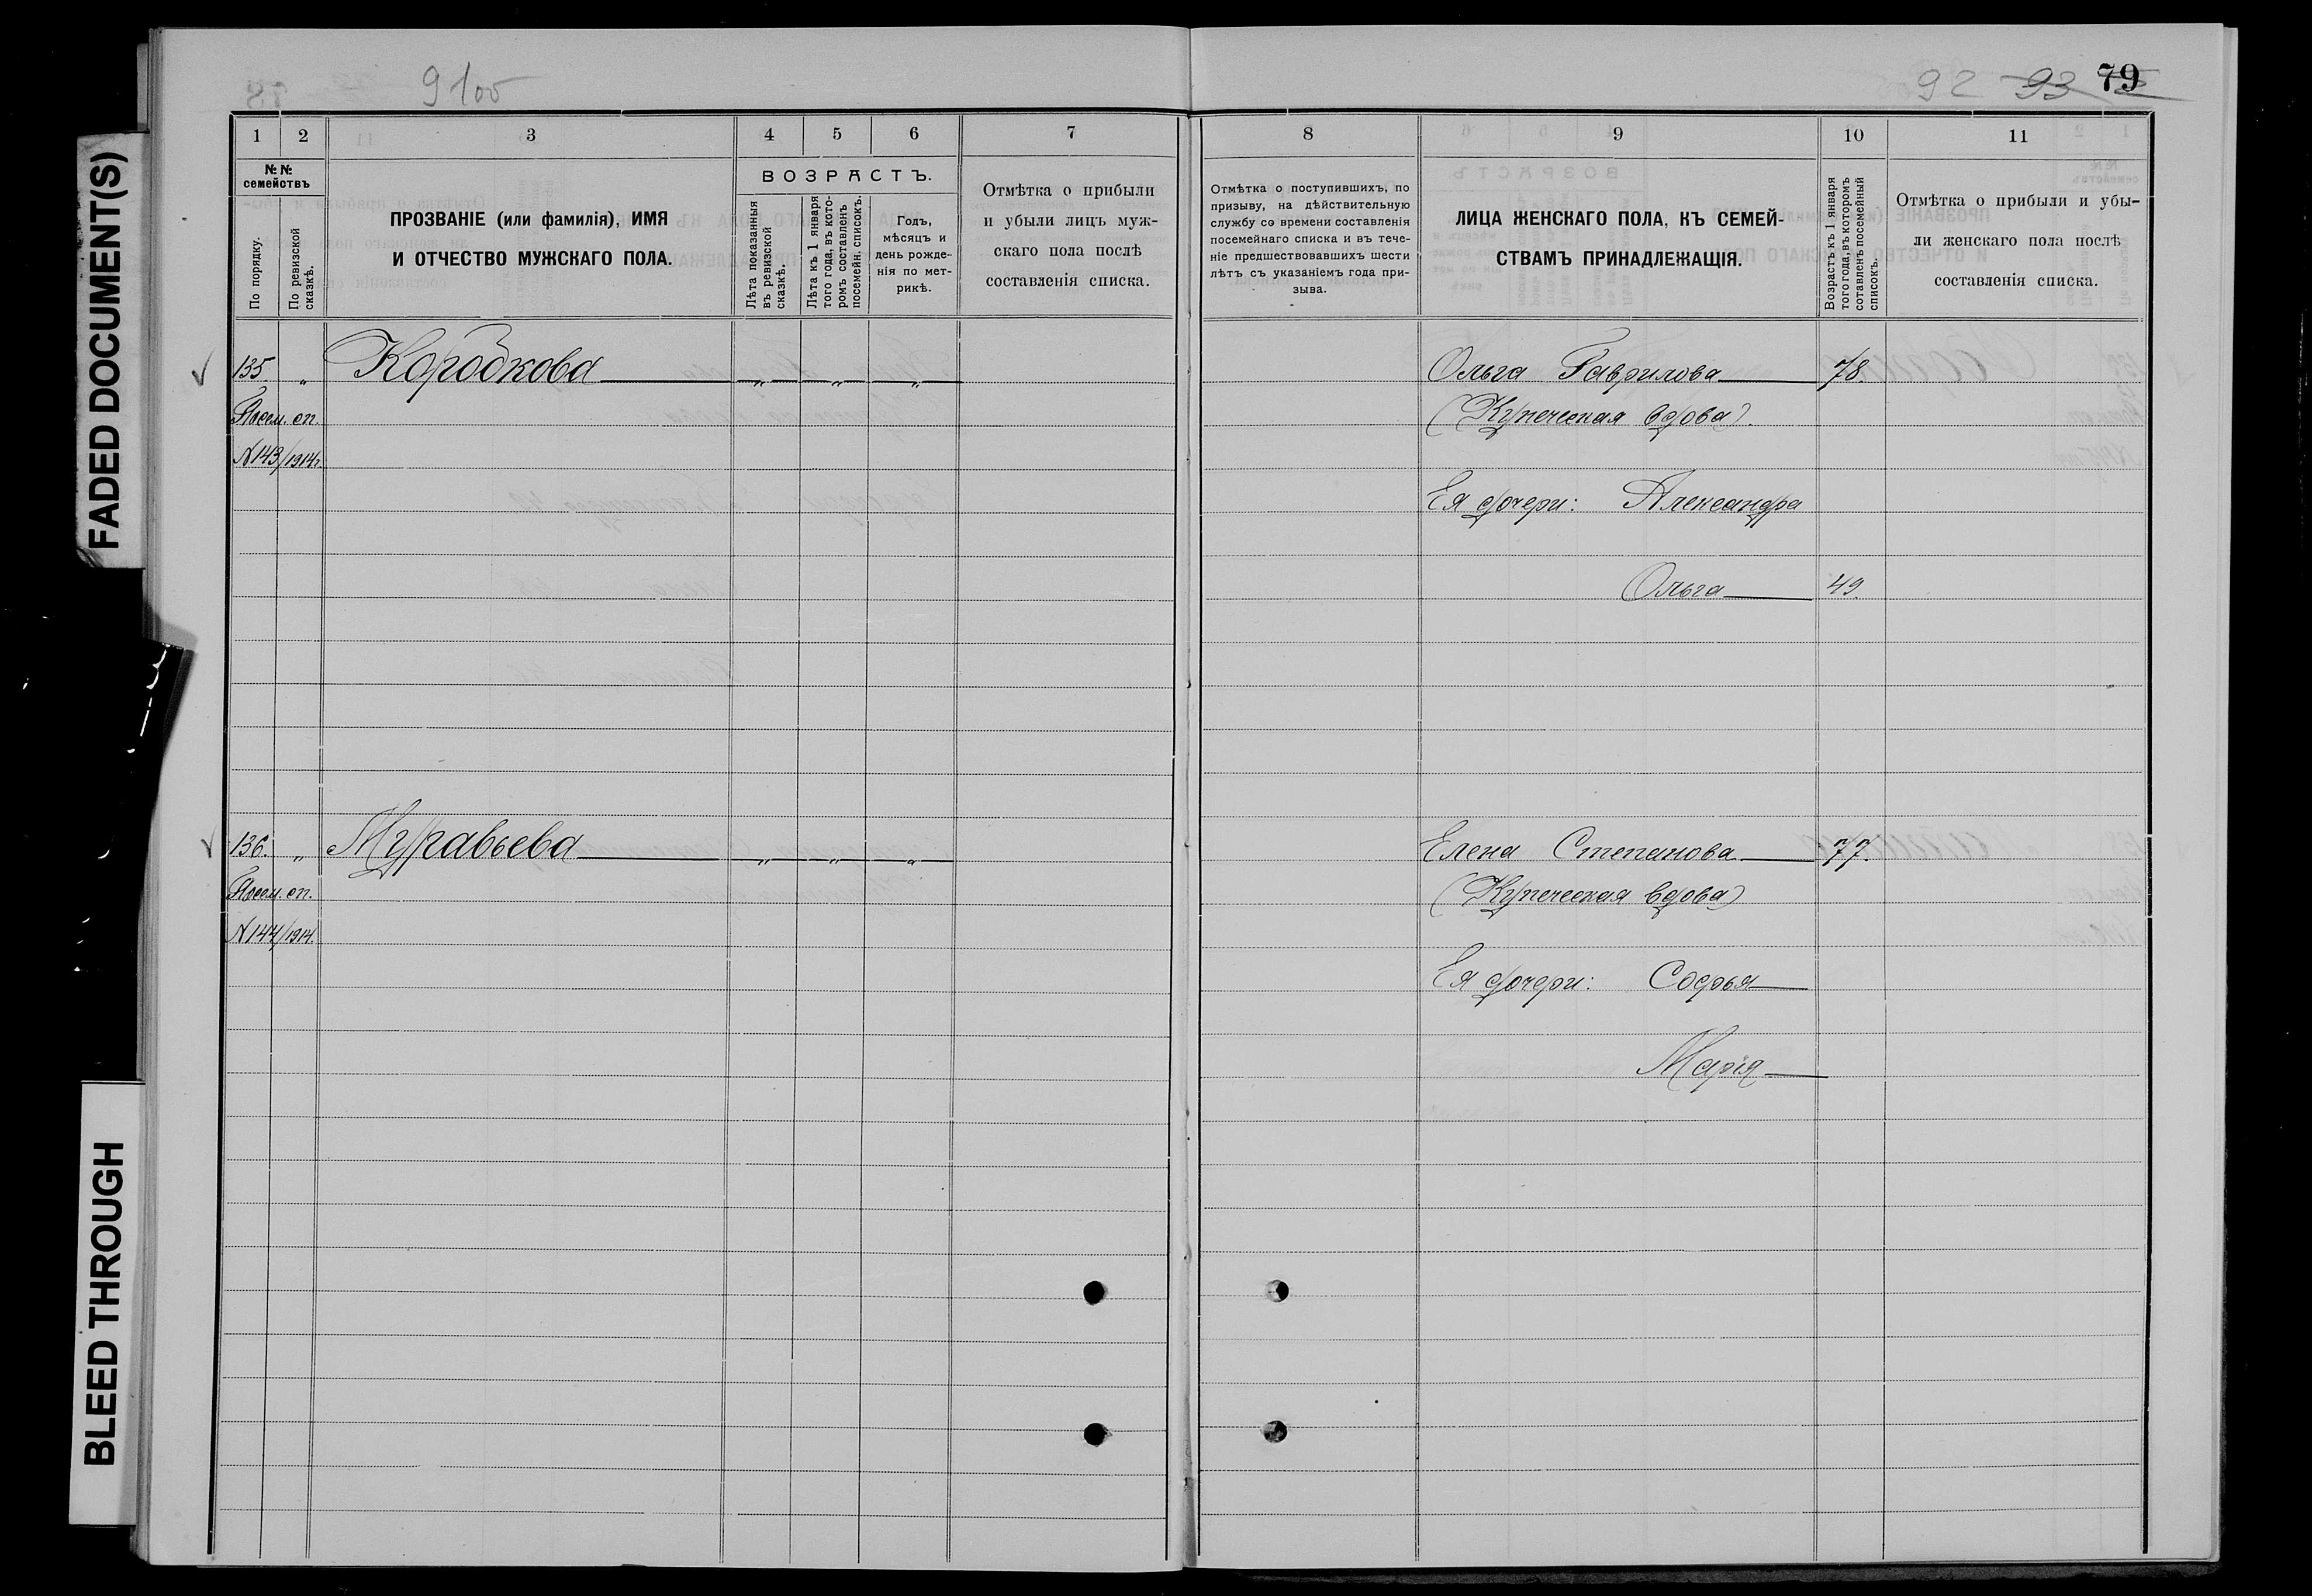 FADED DOCUMENT(S)
BLEED THROUGH
91 об
92 93 79
1 2 3 4 5 6 7
№№ семействъ
По порядку.
По ревизской сказкѣ.
ПРОЗВАНІЕ (или фамилія), ИМЯ
И ОТЧЕСТВО МУЖСКАГО ПОЛА.
ВОЗРАСТЪ.
Лѣта показанныя въ ревизской сказкѣ.
Лѣта къ 1 января того года, въ кото-ромъ составленъ посемейн. списокъ.
Годъ,
мѣсяцъ и
день рожде-
нія по мет-
рикѣ.
Отмѣтка о прибыли
и убыли лицъ муж-
скаго пола послѣ
составленія списка.
8 9 10 11
Отмѣтка о поступившихъ, по
призыву, на дѣйствительную
службу со времени составленія
посемейнаго списка и въ тече-
ніе предшествовавшихъ шести
лѣтъ съ указаніемъ года при-
зыва.
ЛИЦА ЖЕНСКАГО ПОЛА, КЪ СЕМЕЙ-
СТВАМЪ ПРИНАДЛЕЖАЩІЯ.
Возрастъ къ 1 января
того года, въ которомъ
сотавленъ посемейный
списокъ.
Отмѣтка о прибыли и убы-
ли женскаго пола послѣ
составленія списка.
135. „ Коробкова „ „ „ Ольга Гаврилова 78.
Посем. сп. (Купеческая вдова).
№143/1914г.
Ея дочери: Александра
Ольга 49.
136. „ Муравьева „ „ „ Елена Степанова 77.
Посем. сп. (Купеческая вдова)
№144/1914.
Ея дочери: Софья
Марія